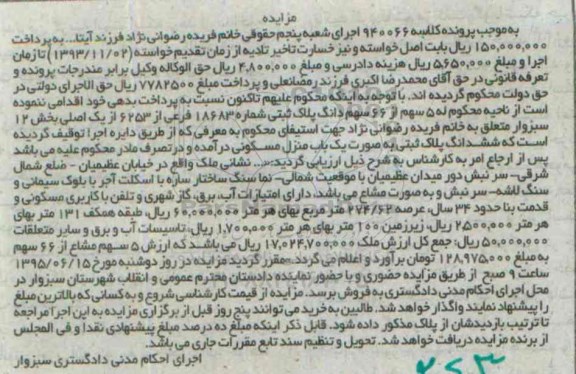 مزایده
به موجب پرونده کلاسه ۹۴۰۰۶۶ اجرای شعبه پنجم حقوقی خانم فریده رضوانی نژاد فرزند آیتا... به پرداخت
۱۵۰,۰۰۰,۰۰۰ ریال بابت اصل خواسته و نیز خسارت تاخیر تادیه از زمان تقدیم خواسته (۱۳۹۳/۱۱/۰۲) تا زمان
اجرا و مبلغ ۵,۶۵۰,۰۰۰ ریال هزینه دادرسی و مبلغ ۴,۸۰۰,۰۰۰ ریال حق الوکاله وکیل برابر مندرجات پرونده و
تعرفه قانونی در حق آقای محمدرضا اکبری فرزند رمضانعلی و پرداخت مبلغ ۷۷۸۲۵۰۰ ریال حق الاجرای دولتی در
حق دولت محکوم گردیده اند. با توجه به اینکه محکوم علیهم تاکنون نسبت به پرداخت بدهی خود اقدامی ننموده
است از ناحیه محکوم له ۵ سهم از ۶۶ سهم دانگ پلاک ثبتی شماره ۱۸۶۸۳ فرعی از ۶۲۵۳ از یک اصلی بخش ۱۲
سبزوار متعلق به خانم فریده رضوانی نژاد جهت استیفای محکوم به معرفی که از طریق دایره اجرا توقیف گردیده
است که ششدانگ پلاک ثبتی به صورت یک باب منزل مسکونی درآمده و در تصرف مادر محکوم علیه می باشد
پس از ارجاع امر به کارشناس به شرح ذیل ارزیابی گردید:«... نشانی ملک واقع در خیابان عظیمیان - ضلع شمال
شرقی- سر نبش دور میدان عظیمیان با موقعیت شمالی- نما سنگ ساختار سازه با اسکلت آجر با بلوک سیمانی و
سنگ لاشه- سر نبش و به صورت مشاع می باشد. دارای امتیازات آب، برق، گاز شهری و تلفن با کاربری مسکونی و
قدمت بنا حدود ۳۴ سال، عرصه ۲۷۴/۶۲ متر مربع بهای هر متر ۶۰,۰۰۰,۰۰۰ ریال، طبقه همکف ۱۳۱ متر بهای
هر متر ۲۵۰۰,۰۰۰ ریال، زیرزمین ۱۰۰ متر بهای هر متر ۱,۷۰۰,۰۰۰ ریال، تاسیسات آب و برق و سایر متعلقات
۵۰,۰۰۰,۰۰۰ ریال: جمع کل ارزش ملک ۱۷,۰۲۴,۷۰۰,۰۰۰ ریال می باشد که ارزش ۵ سهم مشاع از ۶۶ سهم
به مبلغ ۱۲۸,۹۷۵,۰۰۰ تومان برآورد و اعلام می گردد.»مقرر گردید مزایده در روز دوشنبه مورخ ۱۳۹۵/۰۶/۱۵
ساعت ۹ صبح از طریق مزایده حضوری و با حضور نماینده دادستان محترم عمومی و انقلاب شهرستان سبزوار در
محل اجرای احکام مدنی دادگستری به فروش برسد. مزایده از قیمت کارشناسی شروع و به کسانی که بالاترین مبلغ
را پیشنهاد نمایند واگذار خواهد شد. طالبین به خرید می توانند پنج روز قبل از برگزاری مزایده به این اجرا مراجعه
تا ترتیب بازدیدشان از پلاک مذکور داده شود. قابل ذکر اینکه مبلغ ده درصد مبلغ پیشنهادی نقدا و فی المجلس
از برنده مزایده دریافت خواهد شد. تحویل و تنظیم سند تابع مقررات جاری می باشد.
اجرای احکام مدنی دادگستری سبزوار